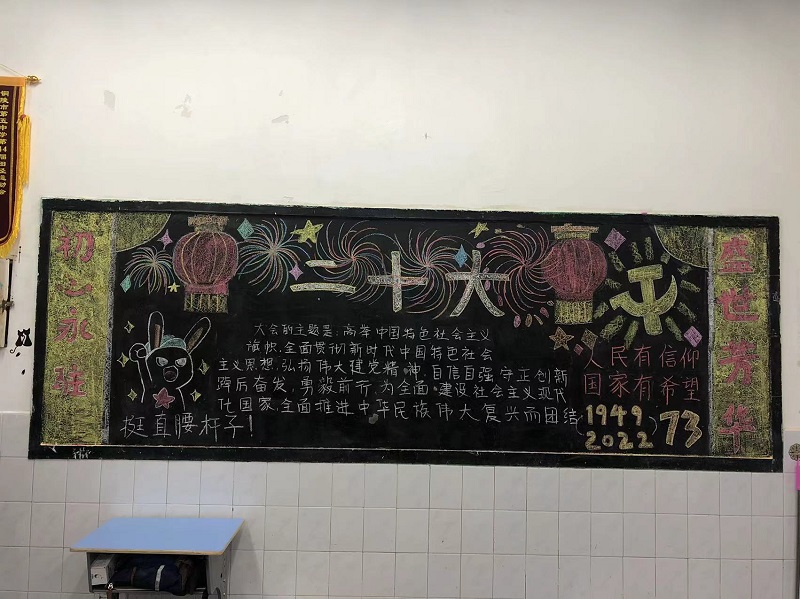 铜陵市第五中学第44届田径运动会
初心永驻
二十大
大会的主题是:高举中国特色社会主义
旗帜,全面贯彻新时代中国特色社会
主义思想,弘扬伟大建党精神,自信自强,守正创新
踔厉奋发,勇毅前行,为全面建设社会主义现代
化国家,全面推进中华民族伟大复兴而团结
挺直腰杆子!
人民有信仰
国家有希望
(1949
2022) 73
盛世芳华